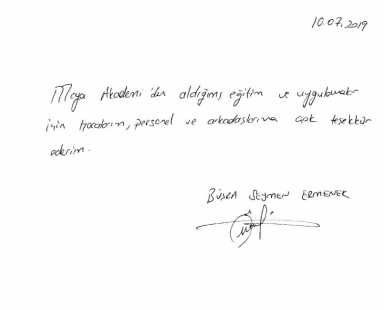 10.07.2019
Maya Akademi'den aldığım eğitim ve uygulamalar
için hocalarım, personel ve arkadaşlarıma çok teşekkür
ederim.
BÜŞRA SEYMEN ERMENEK